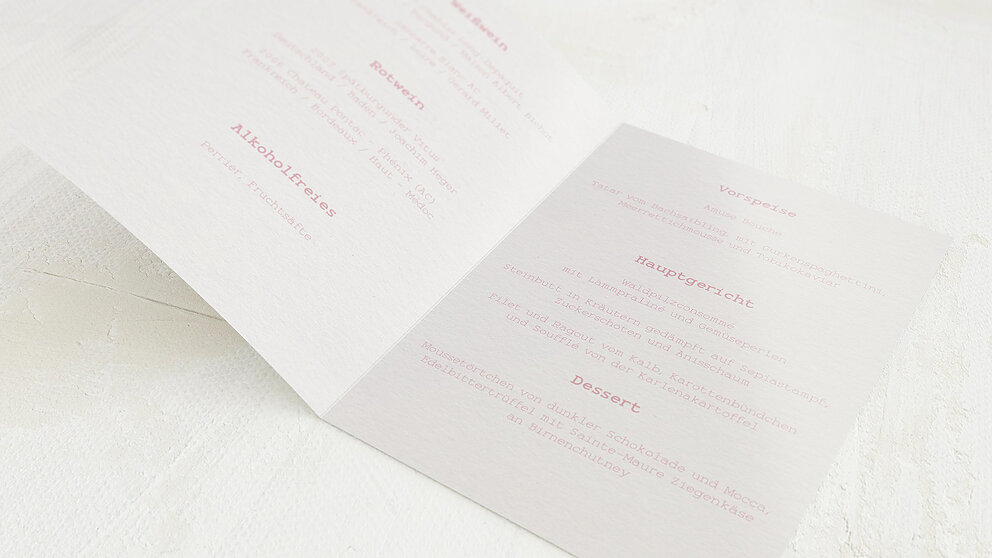 Weißwein
Rotwein
2007 Spätburgunder Vitus
Deutschland / Baden / Joachim Heger
2006 Chateau Pontac - Phénix (AC)
Frankreich / Bordeaux / Haut - Medoc
Alkoholfreies
Perrier, Fruchtsäfte
Vorspeise
Amuse Bouche
Tatar vom Bachsaibling, mit Gurkenspaghettini,
Meerrettichmousse und Tobikokaviar
Hauptgericht
Waldpilzconsommé
mit Lammpraliné und Gemüseperlen
Steinbutt in Kräutern gedämpft auf Sepiastampf,
Zuckerschoten und Anisschaum
Filet und Ragout vom Kalb, Karottenbündchen
und Soufflé von der Karlenakartoffel
Dessert
Moussetörtchen von dunkler Schokolade und Mocca,
Edelbittertrüffel mit Sainte-Maure Ziegenkäse
an Birnenchutney